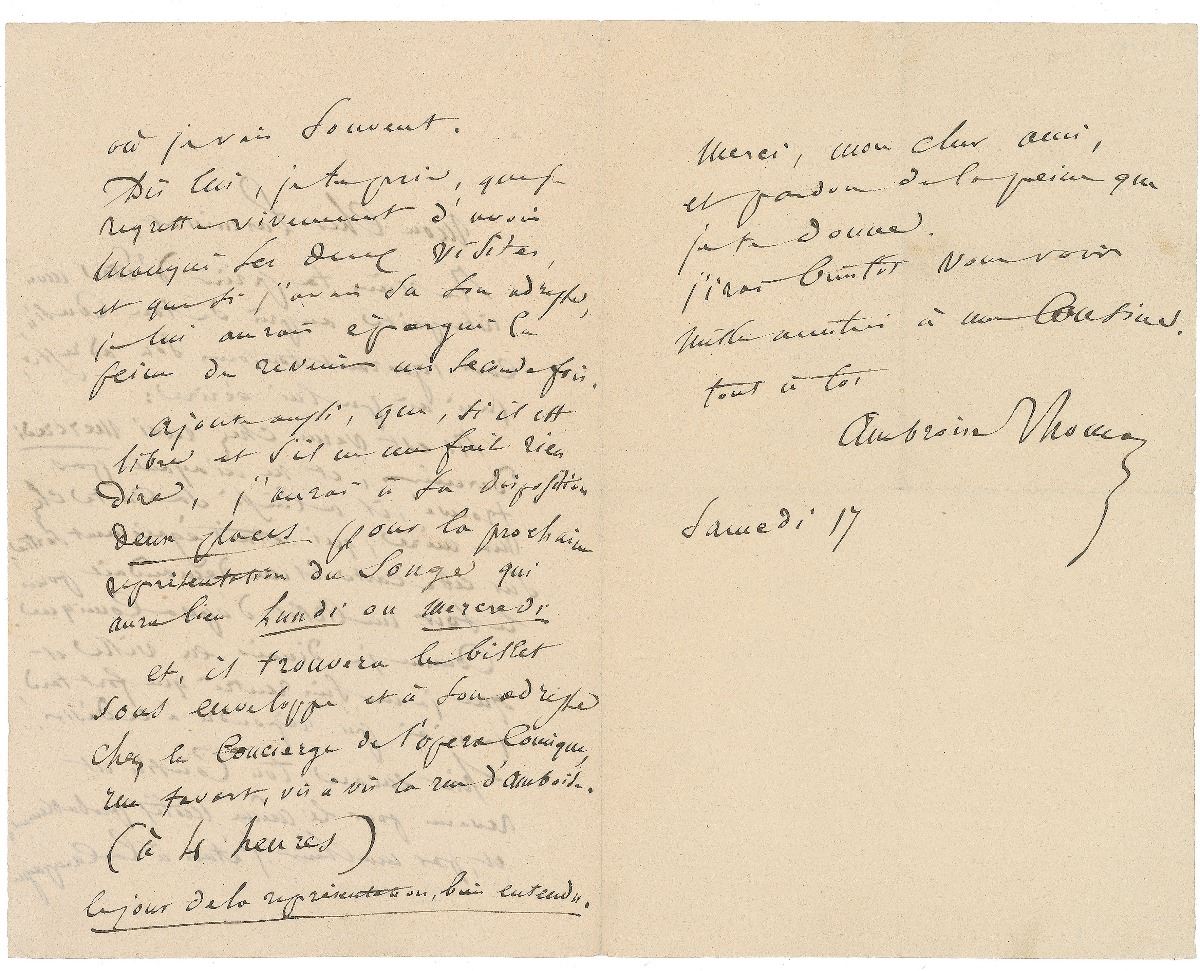 où je vais souvent.
Dis lui, je te prie, que je
regrette vivement d'avoir
manqué ses deux visites,
et que si j'avais su son adresse,
je lui aurais épargné la
peine de revenir une seconde fois.
ajoute aussi, que, si il est
libre et s'il ne me fait rien
dire, j'aurai à sa disposition
deux places pour la prochaine
représentation du Songe qui
aura lieu Lundi ou Mercredi
et, il trouvera le billet
sous enveloppe et à son adresse
chez le Concierge de l'opera Comique,
rue favart, vis à vis la rue d'amboise.
(à 4 heures)
le jour de la représentation, bien entendu.
Merci, mon cher ami,
et pardon de la peine que
je te donne.
j'irai bientôt vous voir
mille amitiés à ma Cousine.
tout à toi
Ambroise Thomas
Samedi 17